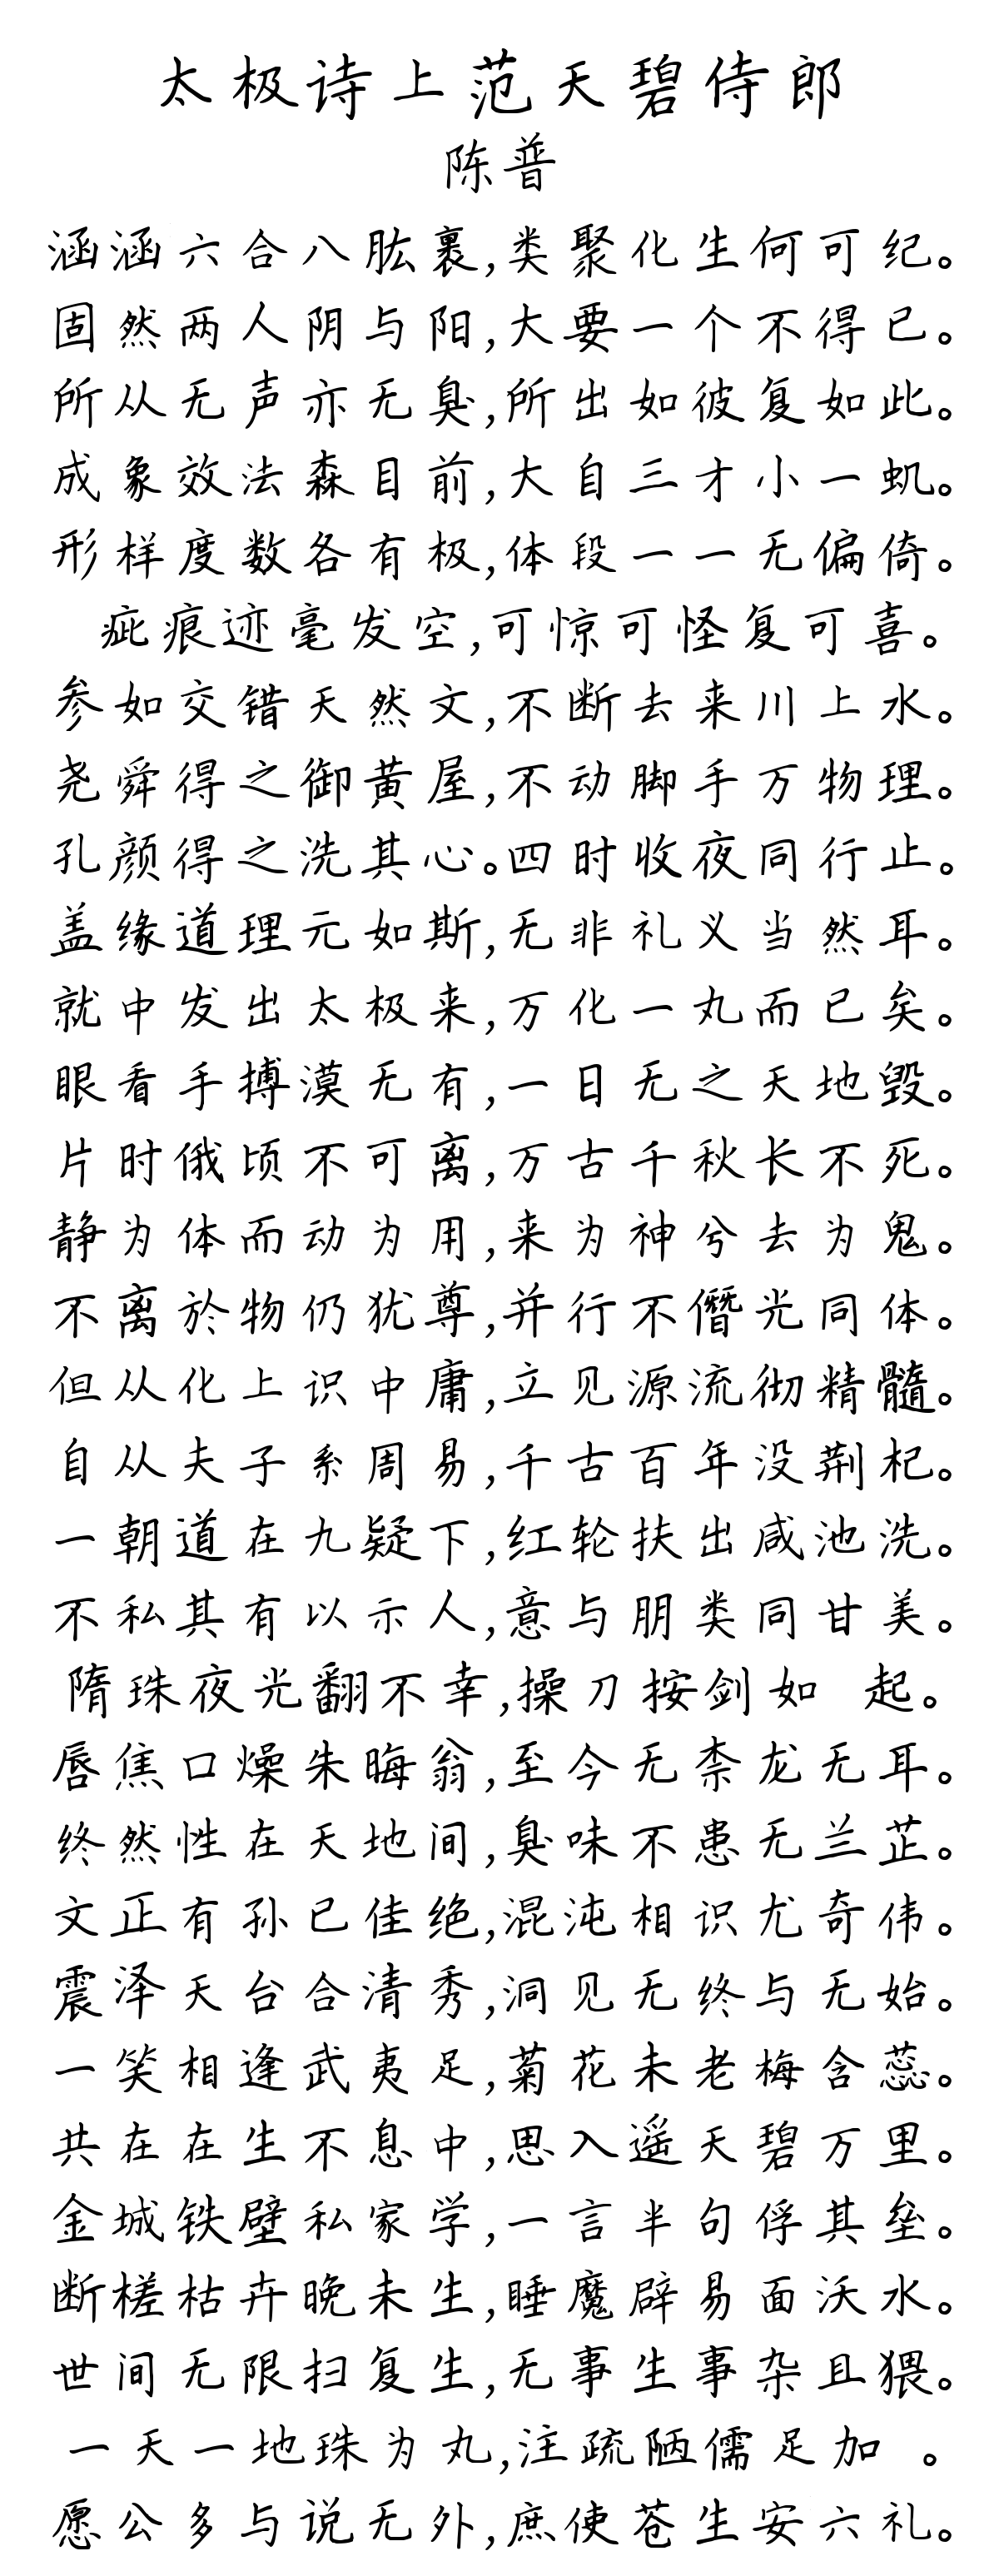 太极诗上范天碧侍郎
陈普
涵涵六合八肱裹,类聚化生何可纪。
固然两人阴与阳,大要一个不得已。
所从无声亦无臭,所出如彼复如此。
成象效法森目前,大自三才小一虮。
形样度数各有极,体段一一无偏倚。
疵痕迹毫发空,可惊可怪复可喜。
参如交错天然文,不断去来川上水。
尧舜得之御黄屋,不动脚手万物理。
孔颜得之洗其心。四时收夜同行止。
盖缘道理元如斯,无非礼义当然耳。
就中发出太极来,万化一丸而已矣。
眼看手搏漠无有,一日无之天地毁。
片时俄顷不可离,万古千秋长不死。
静为体而动为用,来为神兮去为鬼。
不离於物仍犹尊,并行不僭光同体。
但从化上识中庸,立见源流彻精髓。
自从夫子系周易,千古百年没荆杞。
一朝道在九疑下,红轮扶出咸池洗。
不私其有以示人,意与朋类同甘美。
隋珠夜光翻不幸,操刀按剑如 起。
唇焦口燥朱晦翁,至今无柰龙无耳。
终然性在天地间,臭味不患无兰芷。
文正有孙已佳绝,混沌相识尤奇伟。
震泽天台合清秀,洞见无终与无始。
一笑相逢武夷足,菊花未老梅含蕊。
共在在生不息中,思入遥天碧万里。
金城铁壁私家学,一言半句俘其垒。
断槎枯卉晚未生,睡魔辟易面沃水。
世间无限扫复生,无事生事杂且猥。
一天一地珠为丸,注疏陋儒足加 。
愿公多与说无外,庶使苍生安六礼。